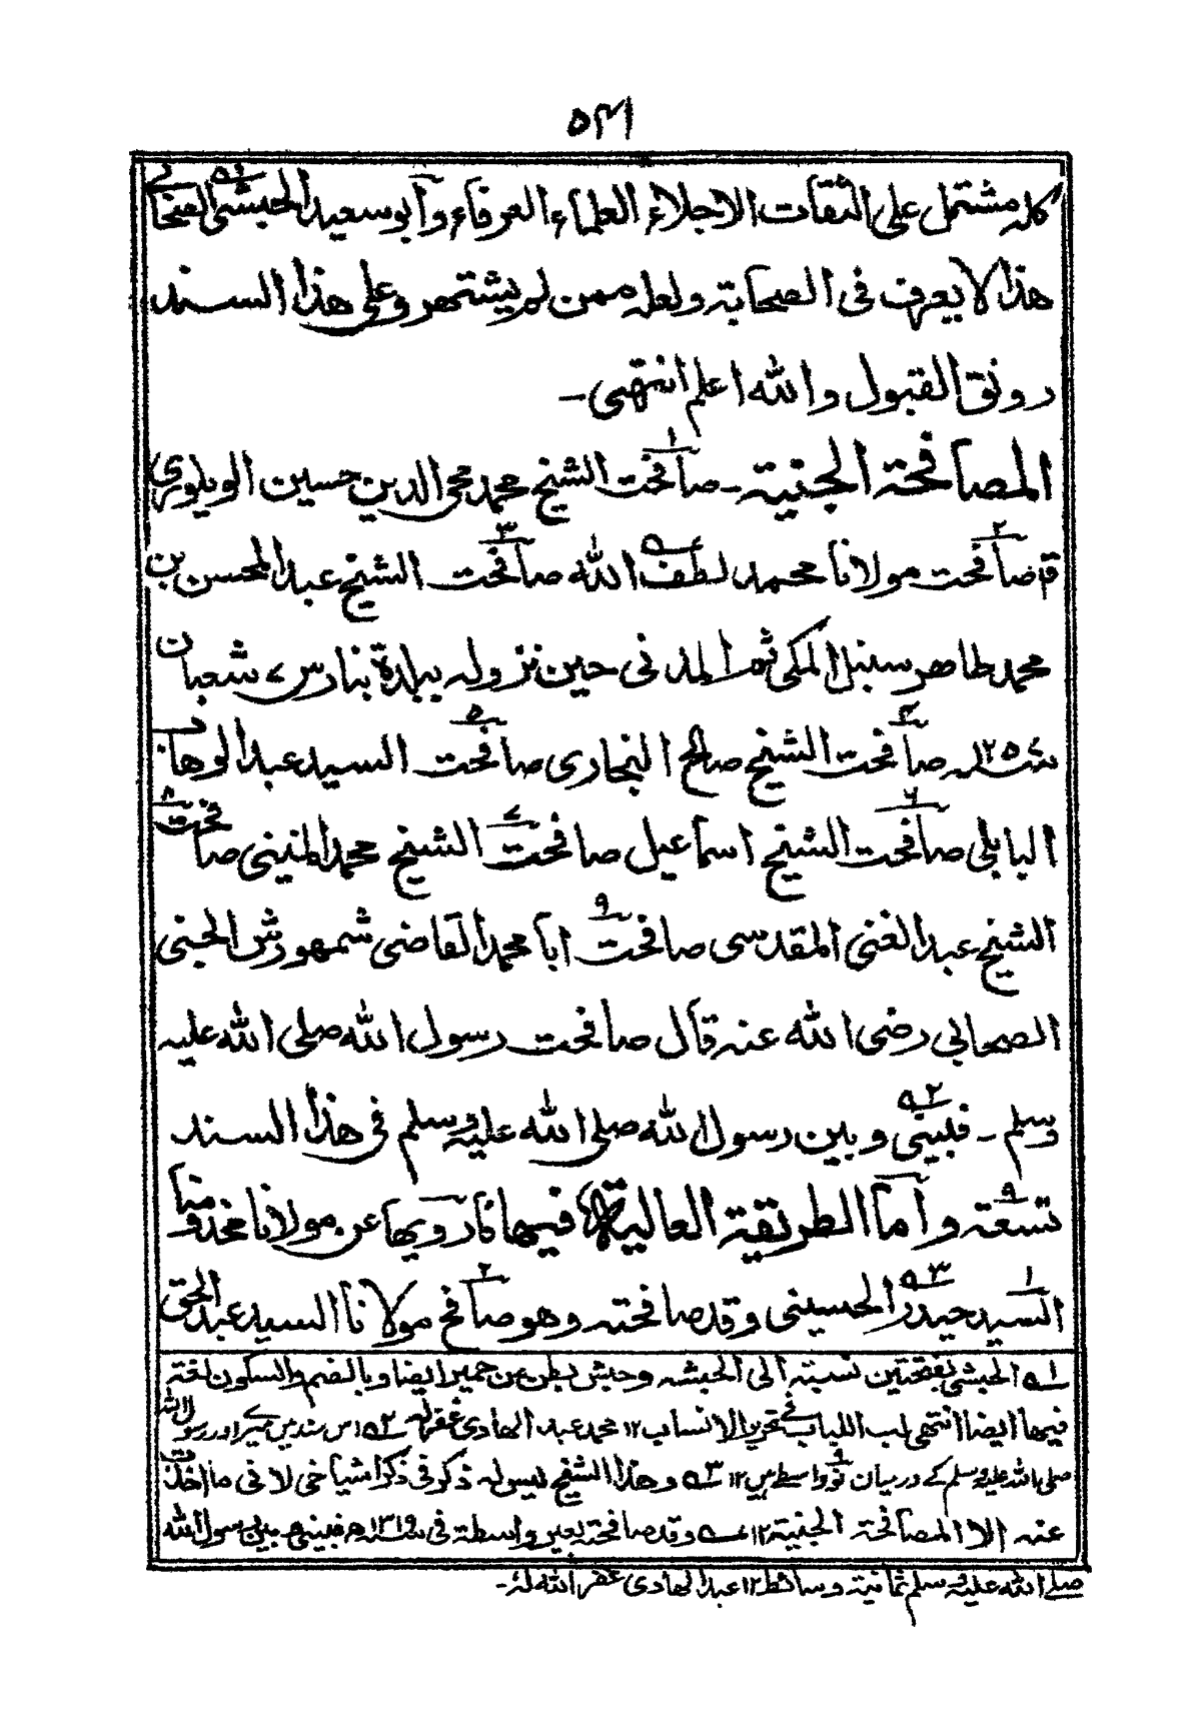 ۵۴۱
كله مشتمل على الثقات الاجلاء العلماء العرفاء وأبو سعيد الحبشى الصحابى
هذا لا يعرف فى الصحابة ولعله ممن لم يشتهر وعلى هذا السند
رونق القبول والله اعلم انتهى۔
المصافحة الجنية۔ صافحت الشيخ محمد محى الدين حسين الويلورى
قال صافحت مولانا محمد لطف الله صافحت الشيخ عبد المحسن بن
محمد طاهر سنبل المكى ثم المدنى حين نزوله ببلدة بنارس ٧ شعبان
سنة ١٢٥٧ه صافحت الشيخ صالح البخارى صافحت السيد عبد الوهاب
البابلى صافحت الشيخ اسماعيل صافحت الشيخ محمد المنينى صافحت
الشيخ عبد الغنى المقدسى صافحت ابا محمد القاضى شمهورش الجنى
الصحابى رضى الله عنه قال صافحت رسول الله صلى الله عليه
وسلم۔ فبينى وبين رسول الله صلى الله عليه وسلم فى هذا السند
تسعة وأما الطريقة العالية فيها فأرويها عن مولانا مخدومنا
السيد حيدر الحسينى وقد صافحته وهو صافح مولانا السيد عبد الحق
ل١ الحبشى بفتحتين نسبة الى الحبشه وحبش بطن من حمير ايضا وبالضم والسكون لغة
فيها ايضا انتهى لب اللباب فى تحرير الانساب ١٢ محمد عبد الهادى غفرله ل٢ اس سند میں میرے اور رسول الله
صلى الله عليه وسلم کے درمیان نو واسطے ہیں ١٢ ل٣ وهذا الشيخ ليس له ذكر فى ذكر اشياخى لانى ما اخذت
عنه الا المصافحة الجنية ١٢ وقد صافحته بغير واسطة فى سنة ١٣١٩ه فبينى وبين رسول الله
صلى الله عليه وسلم ثمانية وسائط ١٢ عبد الهادى غفر الله له۔